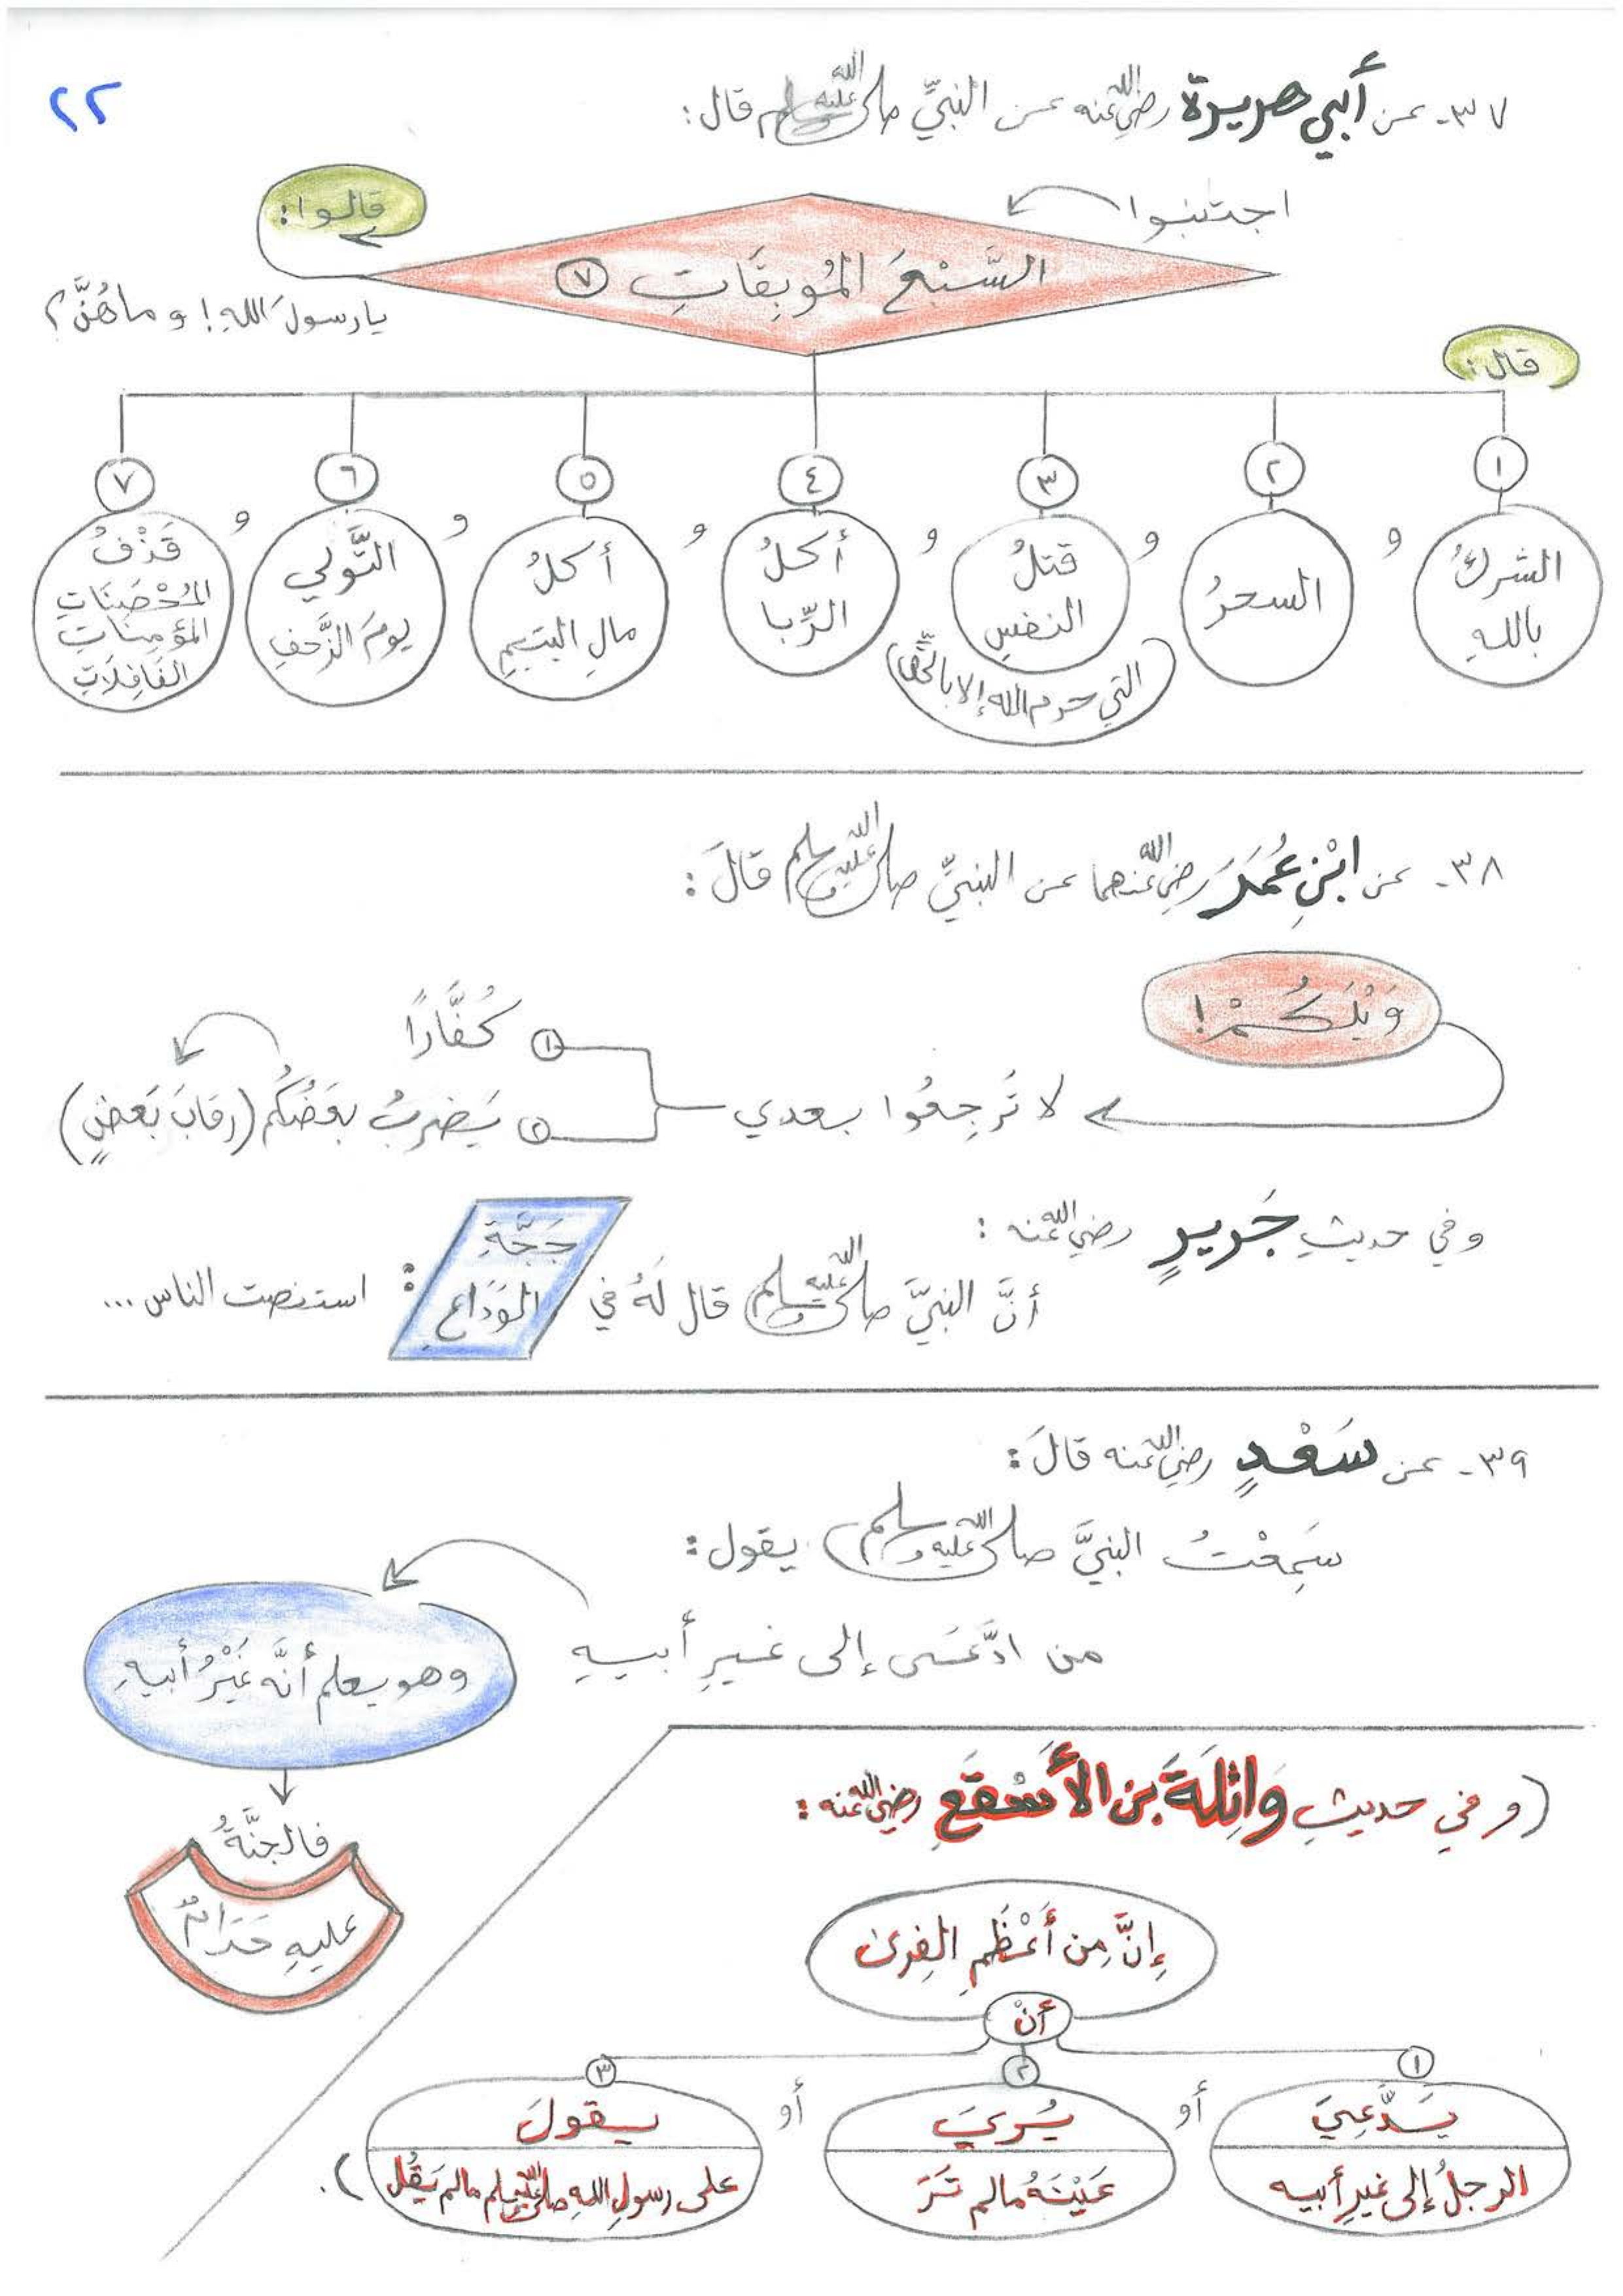 ٢٢
٣٧- عن أبي هريرة رضي الله عنه عن النبيِّ صلى الله عليه وسلم قال:
اجتنبوا
السَّبْعَ المُوبِقَاتِ ٧
قالوا:
يا رسولَ اللهِ! و ماهُنَّ؟
قال:
١
الشركُ
باللهِ
و
٢
السحرُ
و
٣
قتلُ
النفسِ
(التي حرم الله إلا بالحَقِّ)
و
٤
أكلُ
الرِّبا
و
٥
أكلُ
مالِ اليتيمِ
و
٦
التَّولي
يومَ الزَّحفِ
و
٧
قَذْفُ
المُحْصَنَاتِ
المؤمِنَاتِ
الغَافِلَاتِ
٣٨- عن ابْنِ عُمَرَ رضي الله عنهما عن النبيِّ صلى الله عليه وسلم قالَ:
وَيْلَكُمْ!
لا تَرجِعُوا بعدي
١ كُفَّارًا
٢ يَضرِبُ بعَضُكُم (رقابَ بَعضٍ)
وفي حديثِ جَريرٍ رضي الله عنه:
أنَّ النبيَّ صلى الله عليه وسلم قال لَهُ في حَجَّةِ الوَدَاعِ: استنصت الناس ...
٣٩- عن سَعْدٍ رضي الله عنه قالَ:
سَمِعْتُ النبيَّ صلى الله عليه وسلم يقول:
من ادَّعَى إلى غيرِ أبيهِ
وهو يعلم أنَّه غَيْرُ أبيهِ
فالجنَّةُ
عليهِ حَرَامٌ
(و في حديثِ وَاثِلَةَ بن الأَسْقَعِ رضي الله عنه:
إنَّ مِن أَعْظَمِ الفِرَى
أنْ
١
يَدَّعِيَ
الرجلُ إلى غيرِ أبيه
أو
٢
يُرِيَ
عَيْنَهُ مالم تَرَ
أو
٣
يقولَ
على رسولِ اللهِ صلى الله عليه وسلم مالم يَقُل ).